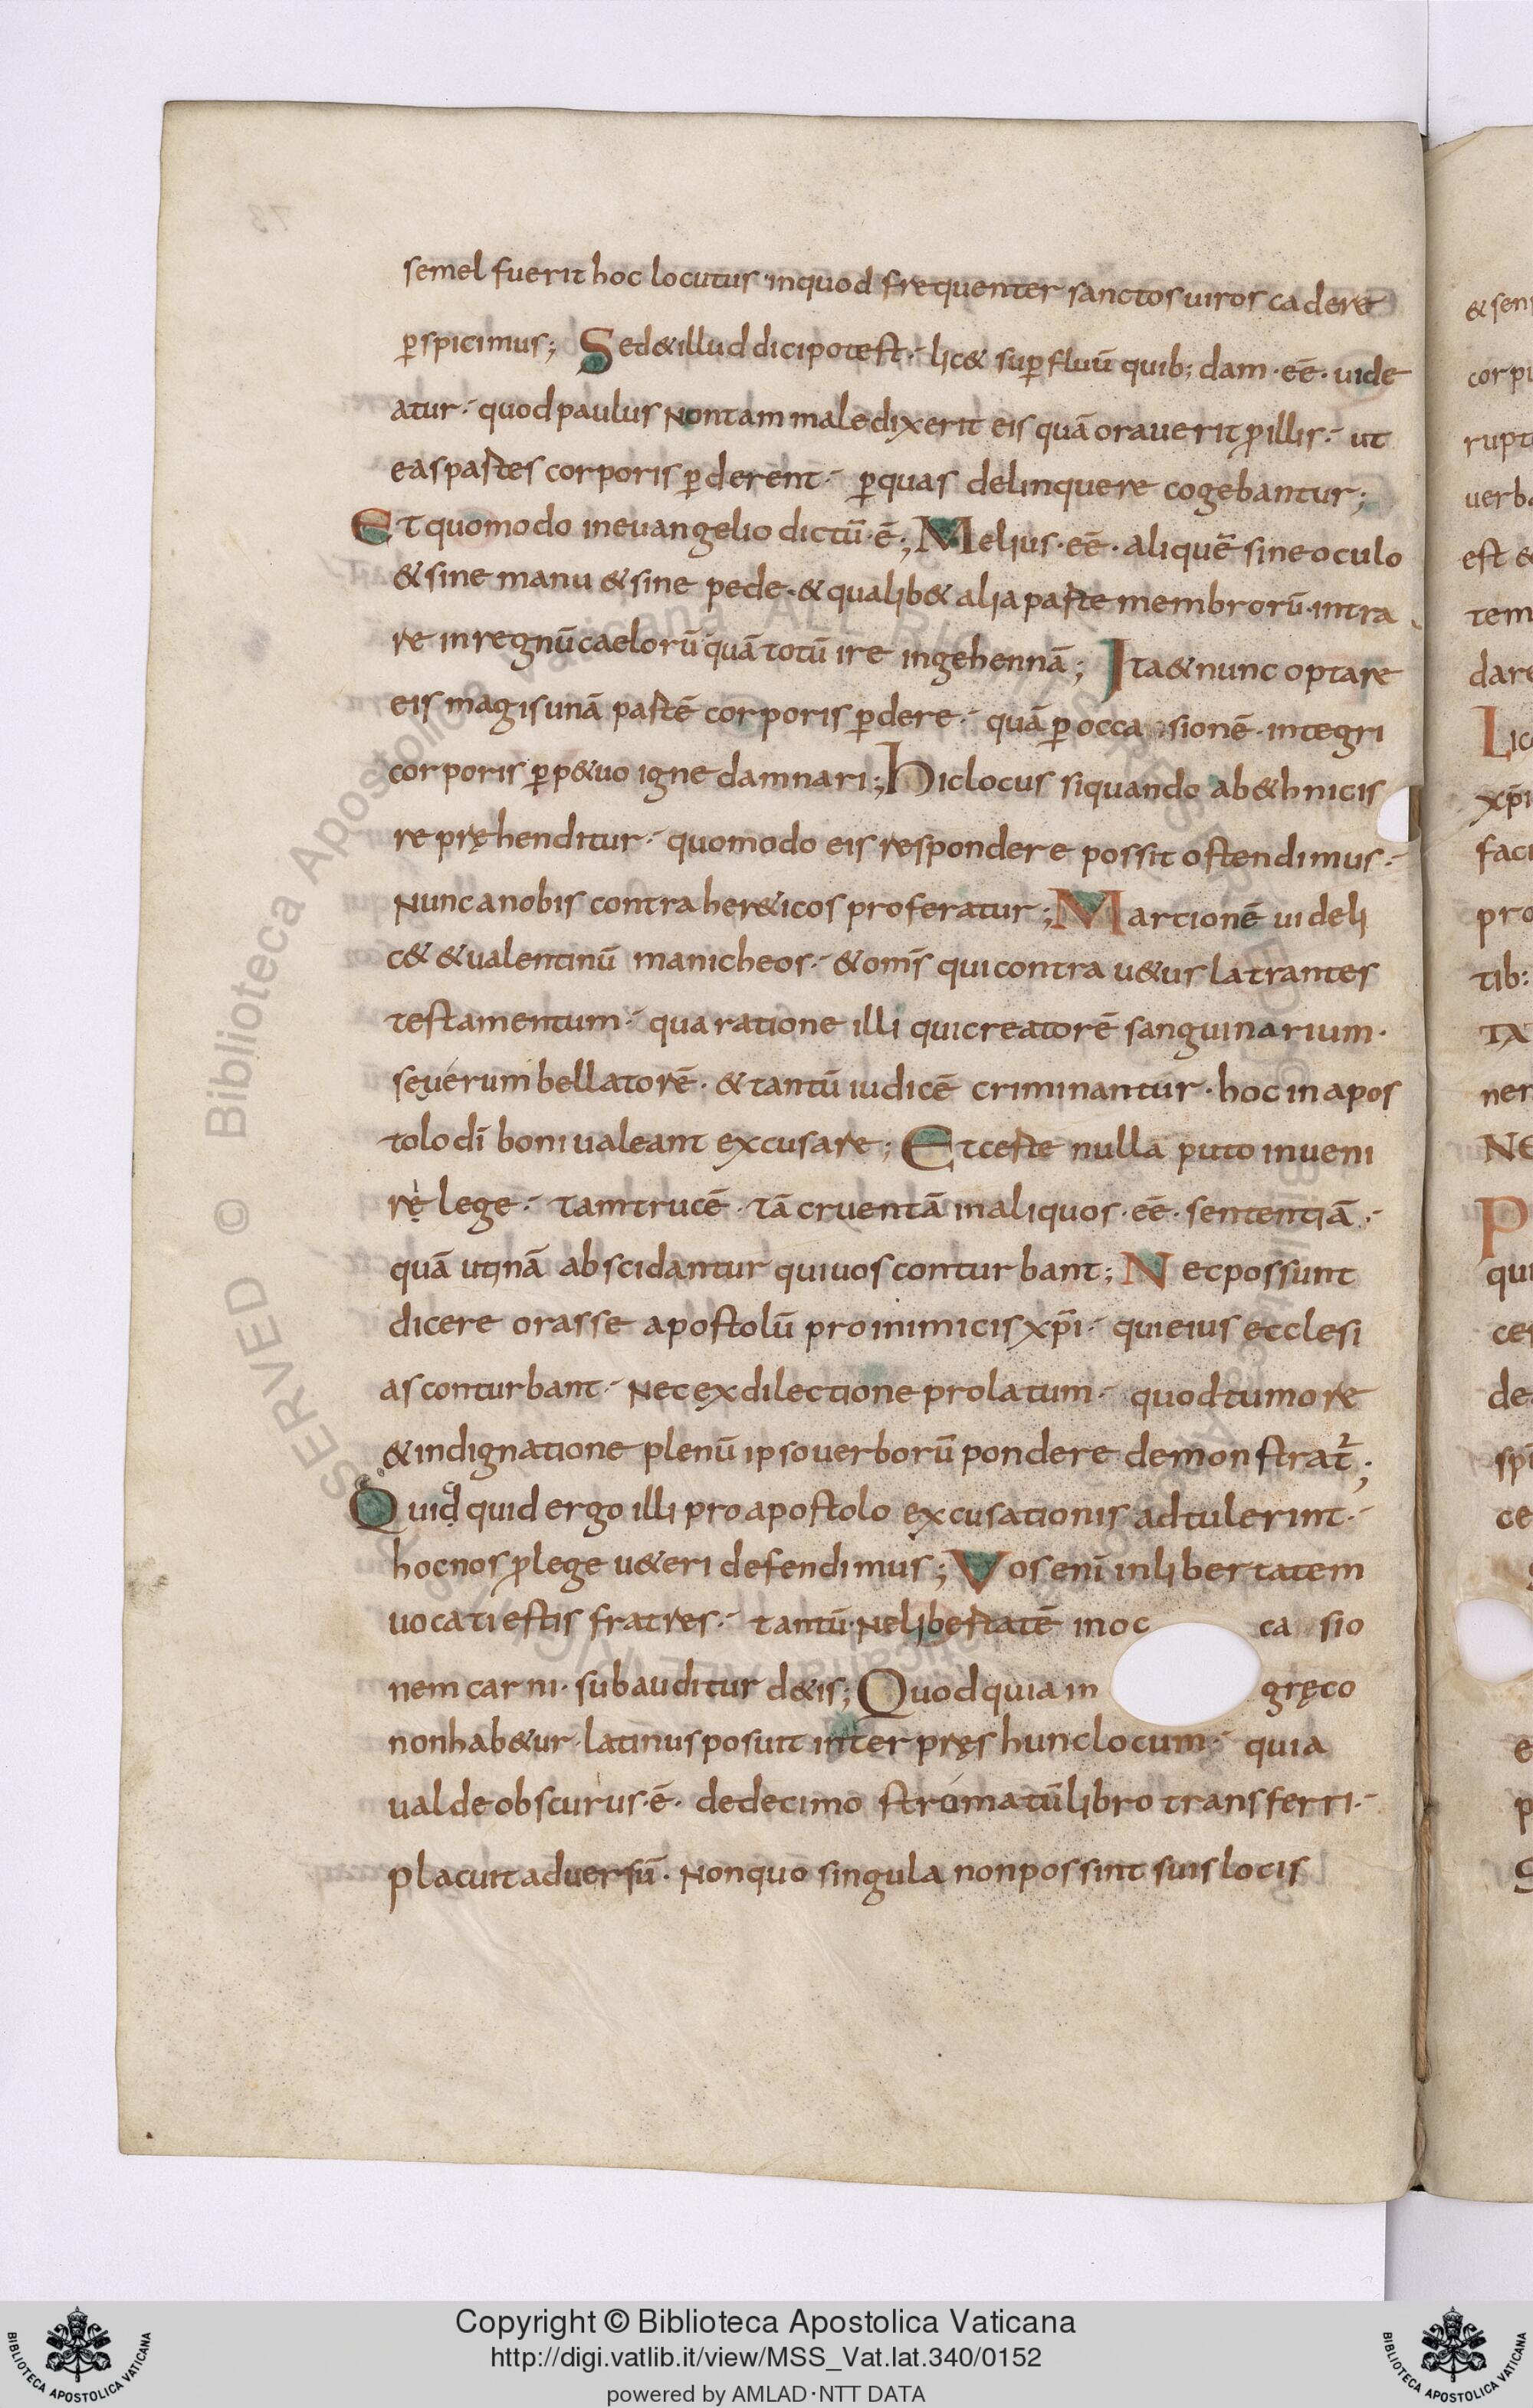 semel fuerit hoc locutus · inquod frequenter sanctos uiros cadere
ꝑspicimus; Sed&illud dici potest · lic& suꝑfluū quib; dam · eē · uide
atur · quod paulus non tam maledixerit eis quā orauerit ꝓ illis · ut
eas partes corporis ꝑderent · ꝑ quas delinquere cogebantur;
Et quomodo in euangelio dictū · ē ·; Melius · eē · aliquē sine oculo
& sine manu & sine pede · & qualib& alia parte membrorū · intra
re in regnū caelorū quā totū ire in gehennā; Ita & nunc optare
eis magis unā partē corporis ꝑdere · quā ꝑ occa sionē · integri
corporis ꝑp&uo igne damnari; Hic locus si quando ab &hnicis
repręhenditur · quomodo eis respondere possit ostendimus ·
Nunc a nobis contra her&icos proferatur; Martionē uideli
c& & ualentinū manicheos · & om̄s qui contra u&us latrantes
testamentum · qua ratione illi qui creatorē sanguinarium ·
seuerum bellatorē · & tantū iudicē criminantur · hoc in apos
tolo dī boni ualeant excusare; Et certe nulla puto inueni
rę lege · tam trucē · tā cruentā in aliquos · eē · sententiā ·
quā utinā abscidantur qui uos conturbant; Nec possunt
dicere orasse apostolū pro inimicis xp̄i · qui eius ecclesi
as conturbant · Nec ex dilectione prolatum · quod tumore
& indignatione plenū ipso uerborū pondere demonstrat̄;
Quidquid ergo illi pro apostolo excusationis adtulerint ·
hoc nos ꝓ lege u&eri defendimus; Vos enī in libertatem
uocati estis fratres · tantū · Ne libertatē in oc ca sio
nem carni · subauditur d&is; Quod quia in gręco
non hab&ur · latinus posuit interpręs hunc locum · quia
ualde obscurus · ē · de decimo stromatū libro transferri ·
placuit ad uersū · Non quo singula non possint suis locis
& sen
corpi
rupt
uerb
est &
tem
dar
Lic
xp̄i
faci
pro
tib:
TA
ner
NE
P
qui
ce
de
sp
ce
e
p
S
Copyright © Biblioteca Apostolica Vaticana
http://digi.vatlib.it/view/MSS_Vat.lat.340/0152
powered by AMLAD·NTT DATA